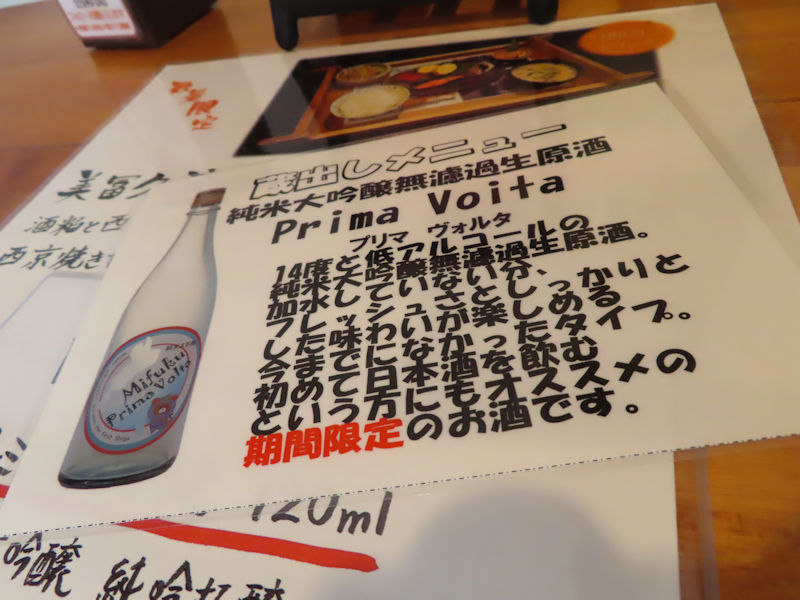 蔵出しメニュー
純米大吟醸無濾過生原酒
Prima Voita
プリマ ヴォルタ
14度と低アルコールの
純米大吟醸無濾過生原酒。
加水していない分、
フレッシュさとしっかりと
した味わいが楽しめる
今までになかったタイプ。
初めて日本酒を飲む
という方にもオススメの
期間限定のお酒です。
Mifuku
Prima Volta
美冨久
酒粕と西
西京焼き
120ml
吟醸 純吟